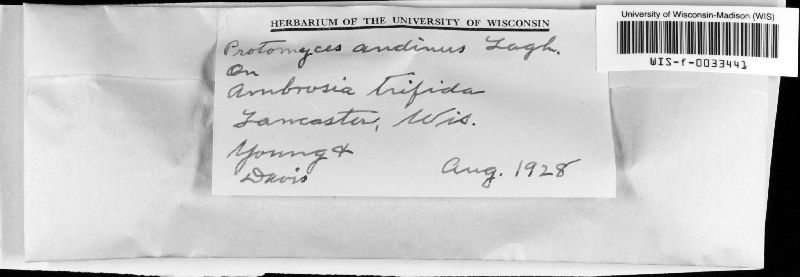 HERBARIUM OF THE UNIVERSITY OF WISCONSIN
Protomyces andinus Lagh.
On
Ambrosia trifida
Lancaster, Wis.
Young &
Davis
Aug. 1928
University of Wisconsin-Madison (WIS)
WIS-f-0033441